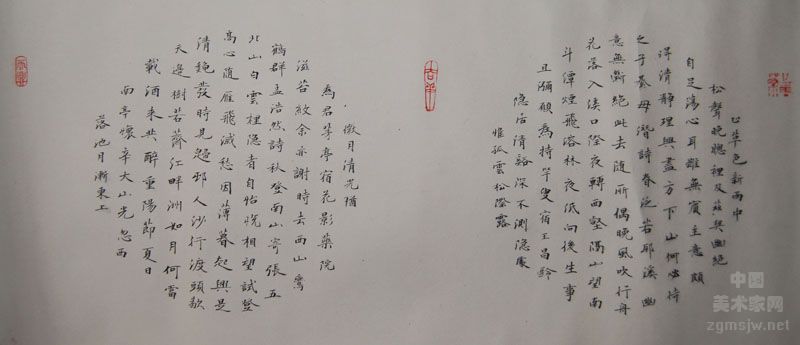 草色新雨中
松聲晚窗裡及茲契幽絕
自足蕩心耳雖無賓主意頗
得清静理興盡方下山何必待
之子綦母潛詩春泛若耶溪幽
意無斷絕此去隨所偶晚風吹行舟
花落入溪口際夜轉西壑隔山望南
斗潭煙飛溶林夜低向後生事
且彌願為持竿叟宿王昌齡
隱居清谿深不測隱處
惟孤雲松際露
微月清光猶
為君茅亭宿花影藥院
滋苔紋余亦謝時去西山鸞
鶴群孟浩然詩秋登南山寄張五
北山白雲裡隱者自怡悅相望試登
高心隨雁飛滅愁因薄暮起興是
清發時見歸人沙行渡頭歇
天邊樹若薺江畔洲如月何當
載酒來共醉重陽節夏日
南亭懷辛大山光忽西
落池月漸東上
中国
美术家网
zgmsjw.net